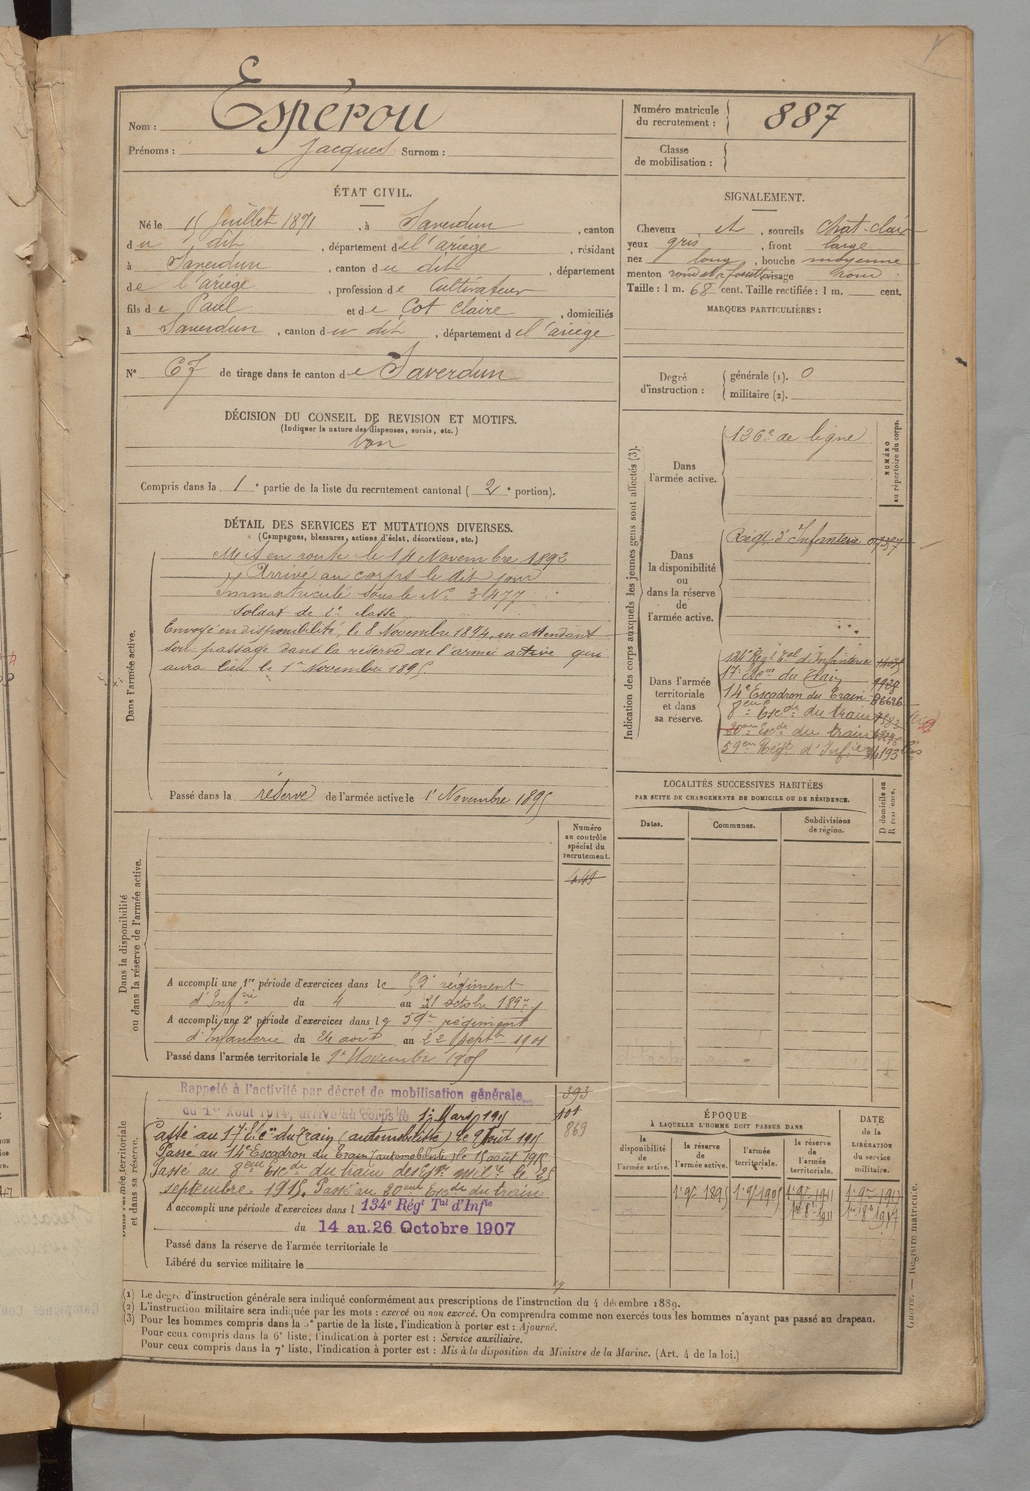 Nom : Espérou
Prénoms : Jacques Surnom :
Numéro matricule du recrutement : 887
Classe de mobilisation :
ÉTAT CIVIL.
Né le 15 Juillet 1871, à Saverdun, canton
du dit, département de l'ariège, résidant
à Saverdun, canton du dit, département
de l'ariège, profession de Cultivateur
fils de Paul et de Cot Claire, domiciliés
à Saverdun, canton du dit, département de l'ariège
N° 67 de tirage dans le canton de Saverdun
SIGNALEMENT.
Cheveux et, sourcils chat-clair
yeux gris, front large
nez long, bouche moyenne
menton rond et à fossette visage rond
Taille : 1 m. 68 cent. Taille rectifiée : 1 m. cent.
MARQUES PARTICULIÈRES :
Degré d'instruction : générale (1). 0
militaire (2).
DÉCISION DU CONSEIL DE REVISION ET MOTIFS.
(Indiquer la nature des dispenses, sursis, etc.)
bon
Compris dans la 1e partie de la liste du recrutement cantonal (2e portion).
DÉTAIL DES SERVICES ET MUTATIONS DIVERSES.
(Campagnes, blessures, actions d'éclat, décorations, etc.)
Dans l'armée active.
Mis en route le 14 Novembre 1892
Arrivé au corps le dit jour
Immatriculé sous le N° 3477
Soldat de 2e classe
Envoyé en disponibilité, le 8 Novembre 1894, en attendant
son passage dans la réserve de l'armée active qui
aura lieu le 1er Novembre 1895.
Passé dans la réserve de l'armée active le 1er Novembre 1895
Indication des corps auxquels les jeunes gens sont affectés (3).
NUMÉRO au répertoire du corps.
Dans l'armée active.
126e de ligne
Dans la disponibilité ou dans la réserve de l'armée active.
Régt d'Infanterie
Dans l'armée territoriale et dans sa réserve.
134e Régt Tal d'Infanterie
17e Escon du Train
14e Escadron du Train
8eme Escde du train
20eme Escde du train
59eme Régt d'Infie
LOCALITÉS SUCCESSIVES HABITÉES
PAR SUITE DE CHANGEMENTS DE DOMICILE OU DE RÉSIDENCE.
Dates. Communes. Subdivisions de région. D domicile ou R résidence.
Dans la disponibilité ou dans la réserve de l'armée active.
Numéro au contrôle spécial du recrutement.
A accompli une 1re période d'exercices dans le 59e régiment
d'Infrie du 4 au 31 octobre 1897
A accompli une 2e période d'exercices dans le 59e régiment
d'Infanterie du 26 août au 22 Septre 1901
Passé dans l'armée territoriale le 1er Novembre 1905
Dans l'armée territoriale et dans sa réserve.
Rappelé à l'activité par décret de mobilisation générale
du 1er Août 1914, arrivé au corps le 12 Mars 1915
Passé au 17e Escon du Train (automobiliste) le 9 Août 1915
Passé au 14e Escadron du Train (automobiliste) le 15 août 1915
Passé au 8eme Escde du train des Eqges milre le 25
septembre 1915. Passé au 20eme Escde du train
A accompli une période d'exercices dans l 134e Régt Tal d'Infie
du 14 au 26 Octobre 1907
Passé dans la réserve de l'armée territoriale le
Libéré du service militaire le
393
101
869
ÉPOQUE
À LAQUELLE L'HOMME DOIT PASSER DANS
la disponibilité de l'armée active. la réserve de l'armée active. l'armée territoriale. la réserve de l'armée territoriale.
DATE de la LIBÉRATION du service militaire.
1er 9bre 1895 1er 9bre 1905 1er 9bre 1911 1er 9bre 1917
1er 8bre 1911 1er 8bre 1917
(1) Le degré d'instruction générale sera indiqué conformément aux prescriptions de l'instruction du 4 décembre 1889.
(2) L'instruction militaire sera indiquée par les mots : exercé ou non exercé. On comprendra comme non exercés tous les hommes n'ayant pas passé au drapeau.
(3) Pour les hommes compris dans la 5e partie de la liste, l'indication à porter est : Ajourné.
Pour ceux compris dans la 6e liste, l'indication à porter est : Service auxiliaire.
Pour ceux compris dans la 7e liste, l'indication à porter est : Mis à la disposition du Ministre de la Marine. (Art. 4 de la loi.)
Guerre. — Registre matricule.